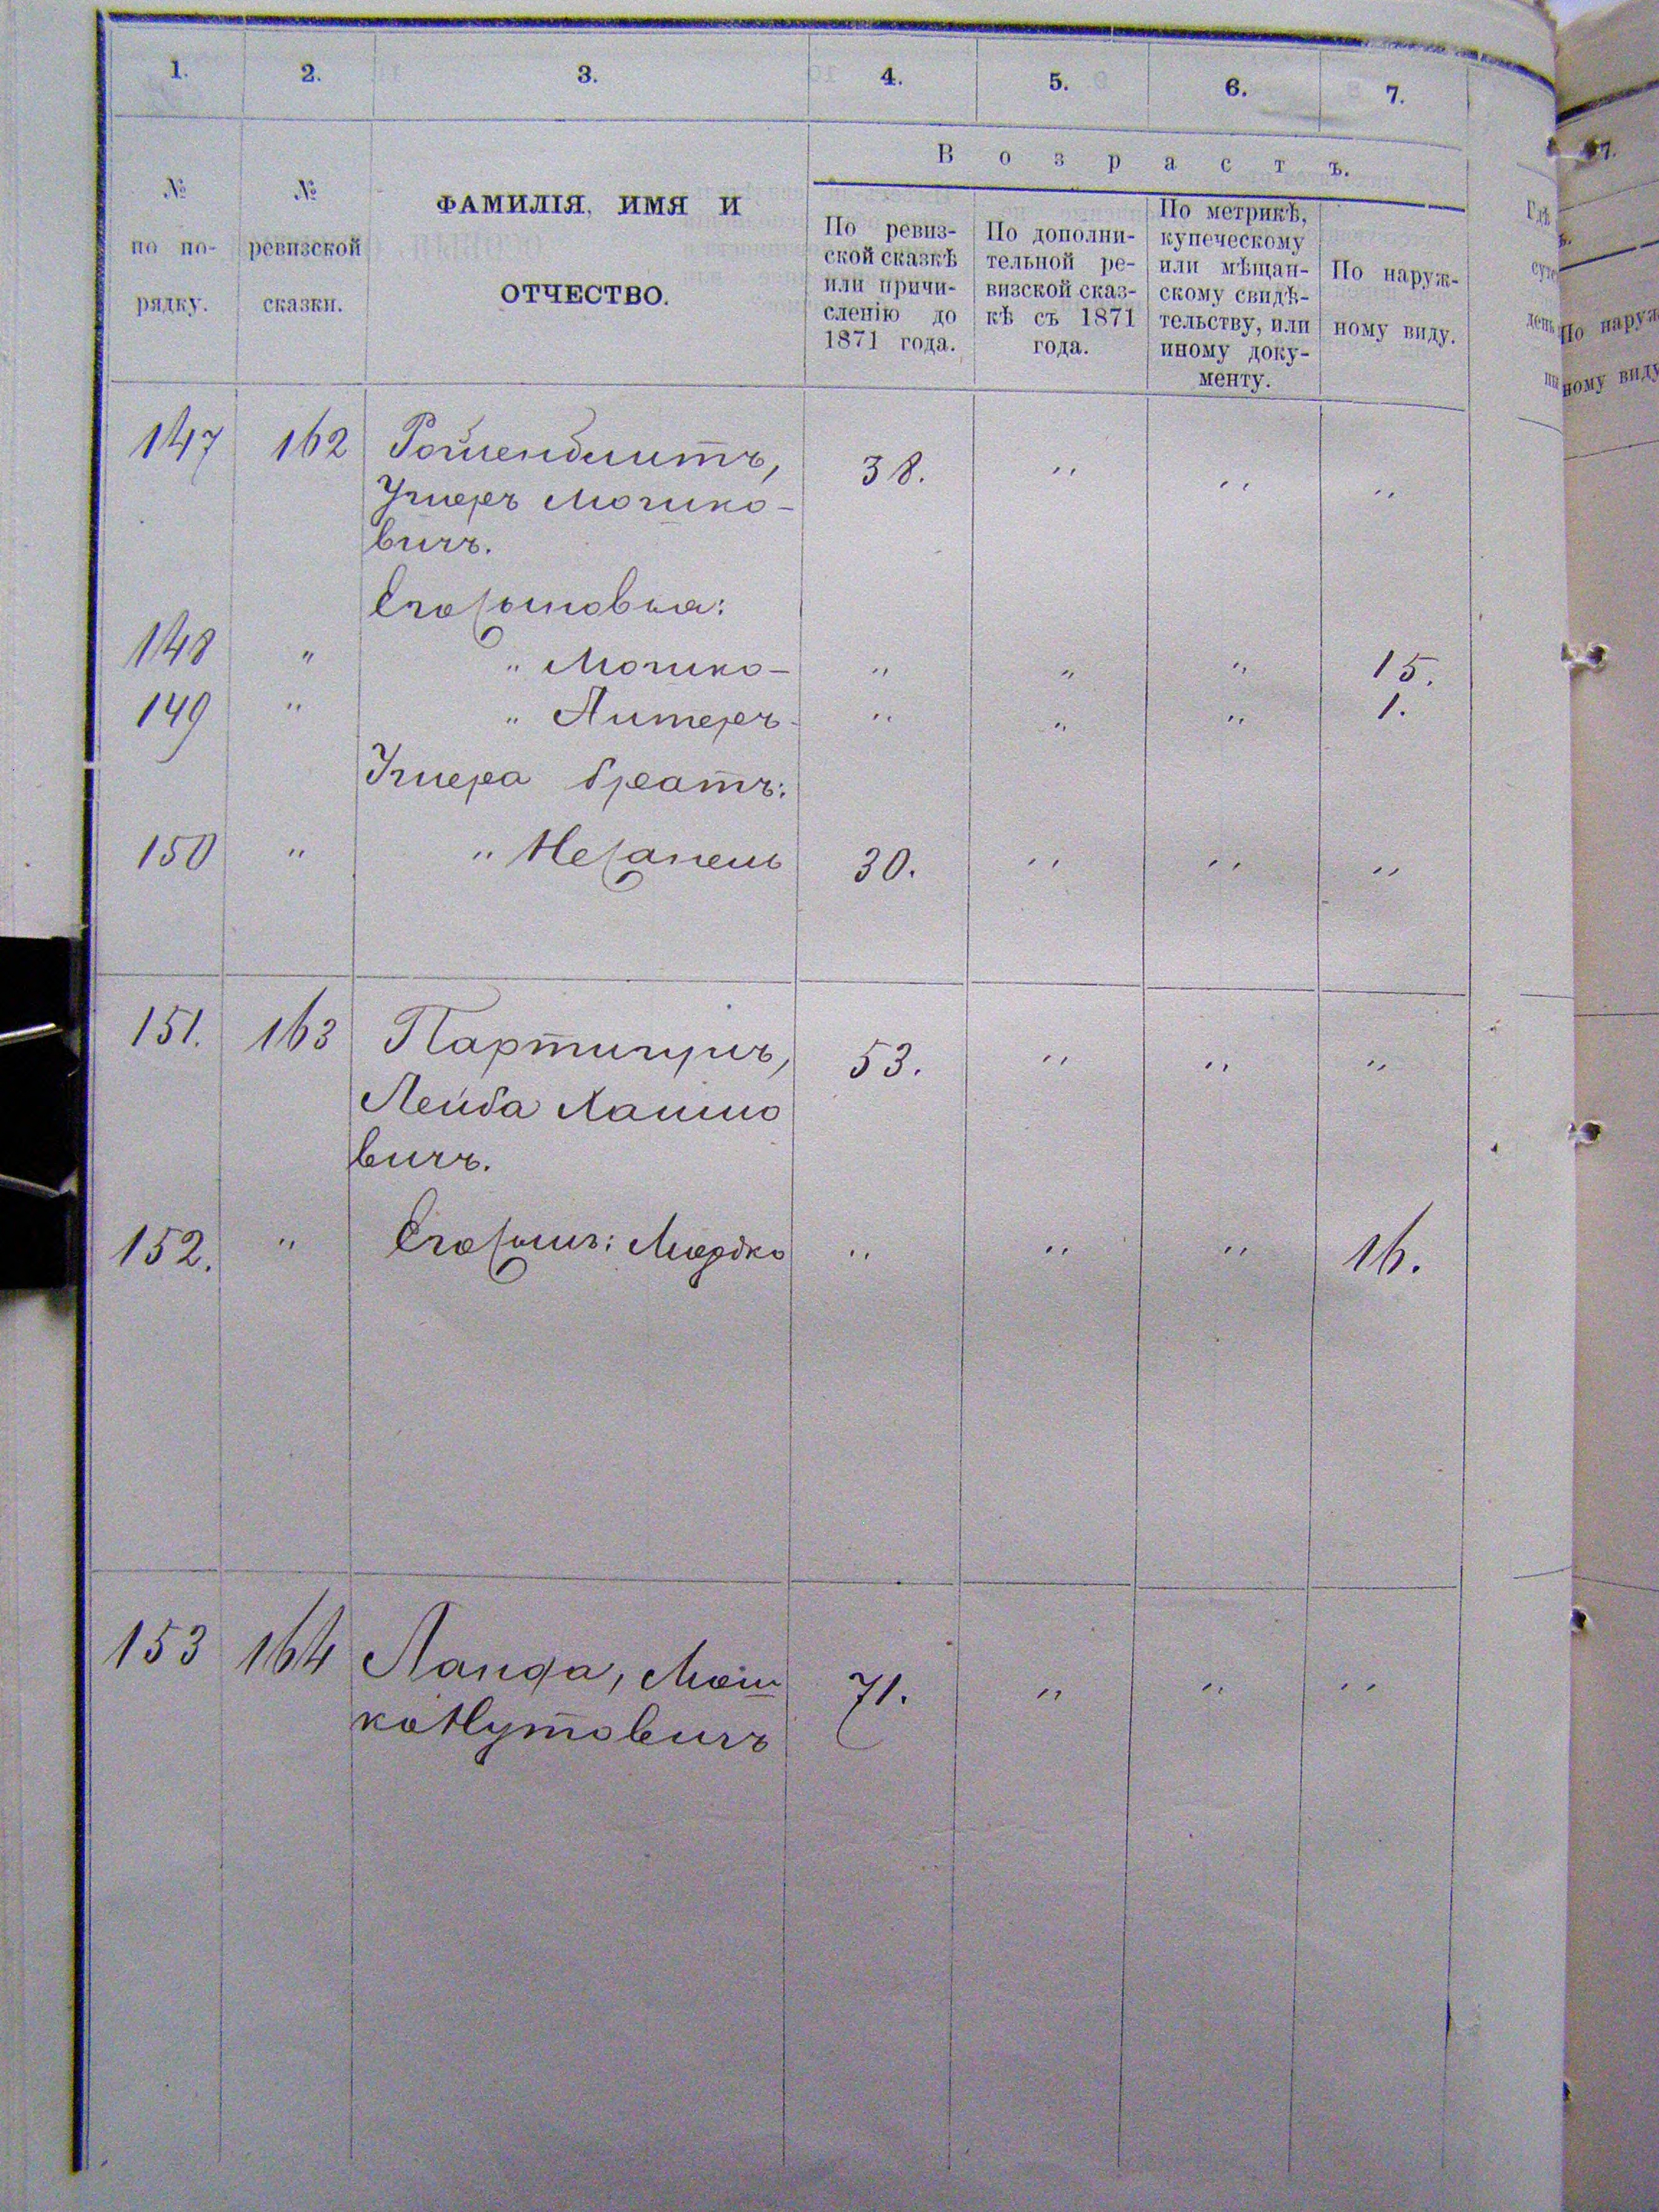 1. 2. 3. 4. 5. 6. 7.
Возрастъ.
№ по порядку.
№ ревизской сказки.
ФАМИЛІЯ, ИМЯ И
ОТЧЕСТВО.
По ревиз-
ской сказкѣ
или причи-
сленію до
1871 года.
По дополни-
тельной ре-
визской сказ-
кѣ съ 1871
года.
По метрикѣ,
купеческому
или мѣщан-
скому свидѣ-
тельству, или
иному доку-
менту.
По наруж-
ному виду.
147 162 38. " " "
Мошко-
вичъ.
Его сыновья:
148 " " Мошко- " " " 15.
149 " " " " " 1.
братъ:
150 " " 30. " " "
151. 163 53. " " "
Лейба Хаимо
вичъ.
152. " Его сынъ: Мордко " " " 16.
153 164 Ланда, Мош 71. " " "
ко Нутовичъ
7.
По наруж
ному виду